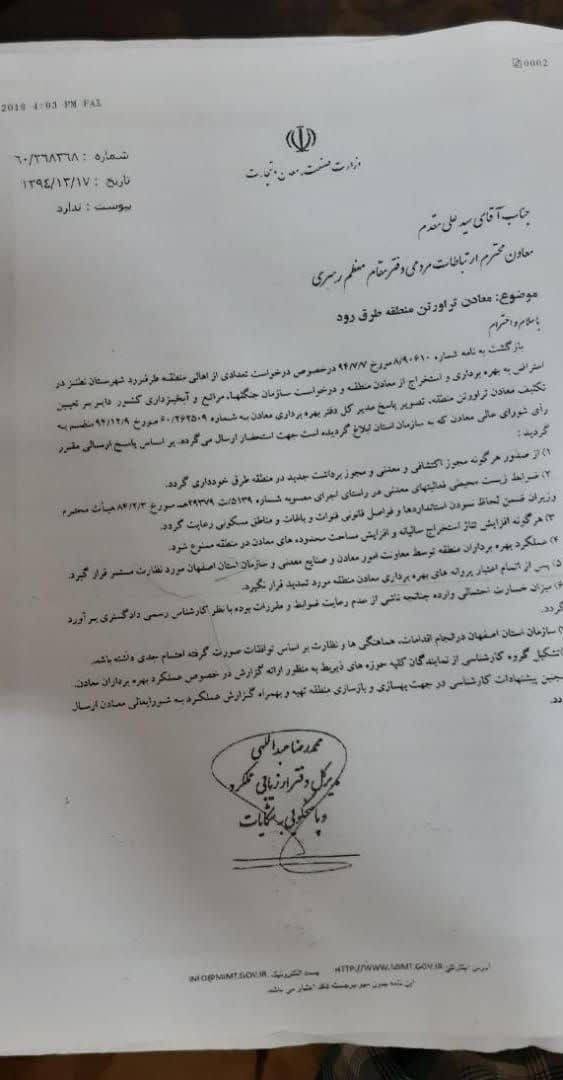 0002
2018 4:03 PM FAX
وزارت صنعت، معدن و تجارت
شماره : ۶۰/۲۶۸۳۶۸
تاریخ : ۱۳۹۴/۱۲/۱۷
پیوست : ندارد
جناب آقای سید علی مقدم
معاون محترم ارتباطات مردمی دفتر مقام معظم رهبری
موضوع: معادن تراورتن منطقه طرق رود
با سلام و احترام
بازگشت به نامه شماره ۸/۹۰۶۱۰ مورخ ۹۴/۷/۷ درخصوص درخواست تعدادی از اهالی منطقه طرقرود شهرستان نطنز در
اعتراض به بهره برداری و استخراج از معادن منطقه و درخواست سازمان جنگلها، مراتع و آبخیزداری کشور دایر بر تعیین
تکلیف معادن تراورتن منطقه، تصویر پاسخ مدیر کل دفتر بهره برداری معادن به شماره ۶۰/۲۶۲۵۰۹ مورخ ۹۴/۱۲/۹ منضم به
رأی شورای عالی معادن که به سازمان استان ابلاغ گردیده است جهت استحضار ارسال می‌گردد. بر اساس پاسخ ارسالی مقرر
گردید :
۱) از صدور هرگونه مجوز اکتشافی و معدنی و مجوز برداشت جدید در منطقه طرق خودداری گردد.
۲) ضوابط زیست محیطی فعالیتهای معدنی در راستای اجرای مصوبه شماره ۵۱۳۹/ت ۲۹۳۷۹هـ مورخ ۸۴/۲/۳ هیأت محترم
وزیران ضمن لحاظ نمودن استانداردها و فواصل قانونی قنوات و باغات و مناطق مسکونی رعایت گردد.
۳) هرگونه افزایش تناژ استخراج سالیانه و افزایش مساحت محدوده های معادن در منطقه ممنوع شود.
۴) عملکرد بهره برداران منطقه توسط معاونت امور معادن و صنایع معدنی و سازمان استان اصفهان مورد نظارت مستمر قرار گیرد.
۵) پس از اتمام اعتبار پروانه های بهره برداری معادن منطقه مورد تمدید قرار نگیرد.
۶) میزان خسارت احتمالی وارده چنانچه ناشی از عدم رعایت ضوابط و مقررات بوده با نظر کارشناس رسمی دادگستری برآورد
گردد.
۷) سازمان استان اصفهان درانجام اقدامات، هماهنگی ها و نظارت بر اساس توافقات صورت گرفته اهتمام جدی داشته باشد.
تشکیل گروه کارشناسی از نمایندگان کلیه حوزه های ذیربط به منظور ارائه گزارش در خصوص عملکرد بهره برداران معادن.
همچنین پیشنهادات کارشناسی در جهت بهسازی و بازسازی منطقه تهیه و بهمراه گزارش عملکرد به شورایعالی معادن ارسال
محمدرضا عبداللهی
مدیرکل دفتر ارزیابی عملکرد
و پاسخگویی به شکایات
آدرس اینترنتی HTTP://WWW.MIMT.GOV.IR پست الکترونیک INFO@MIMT.GOV.IR
این نامه بدون مهر برجسته فاقد اعتبار می باشد.